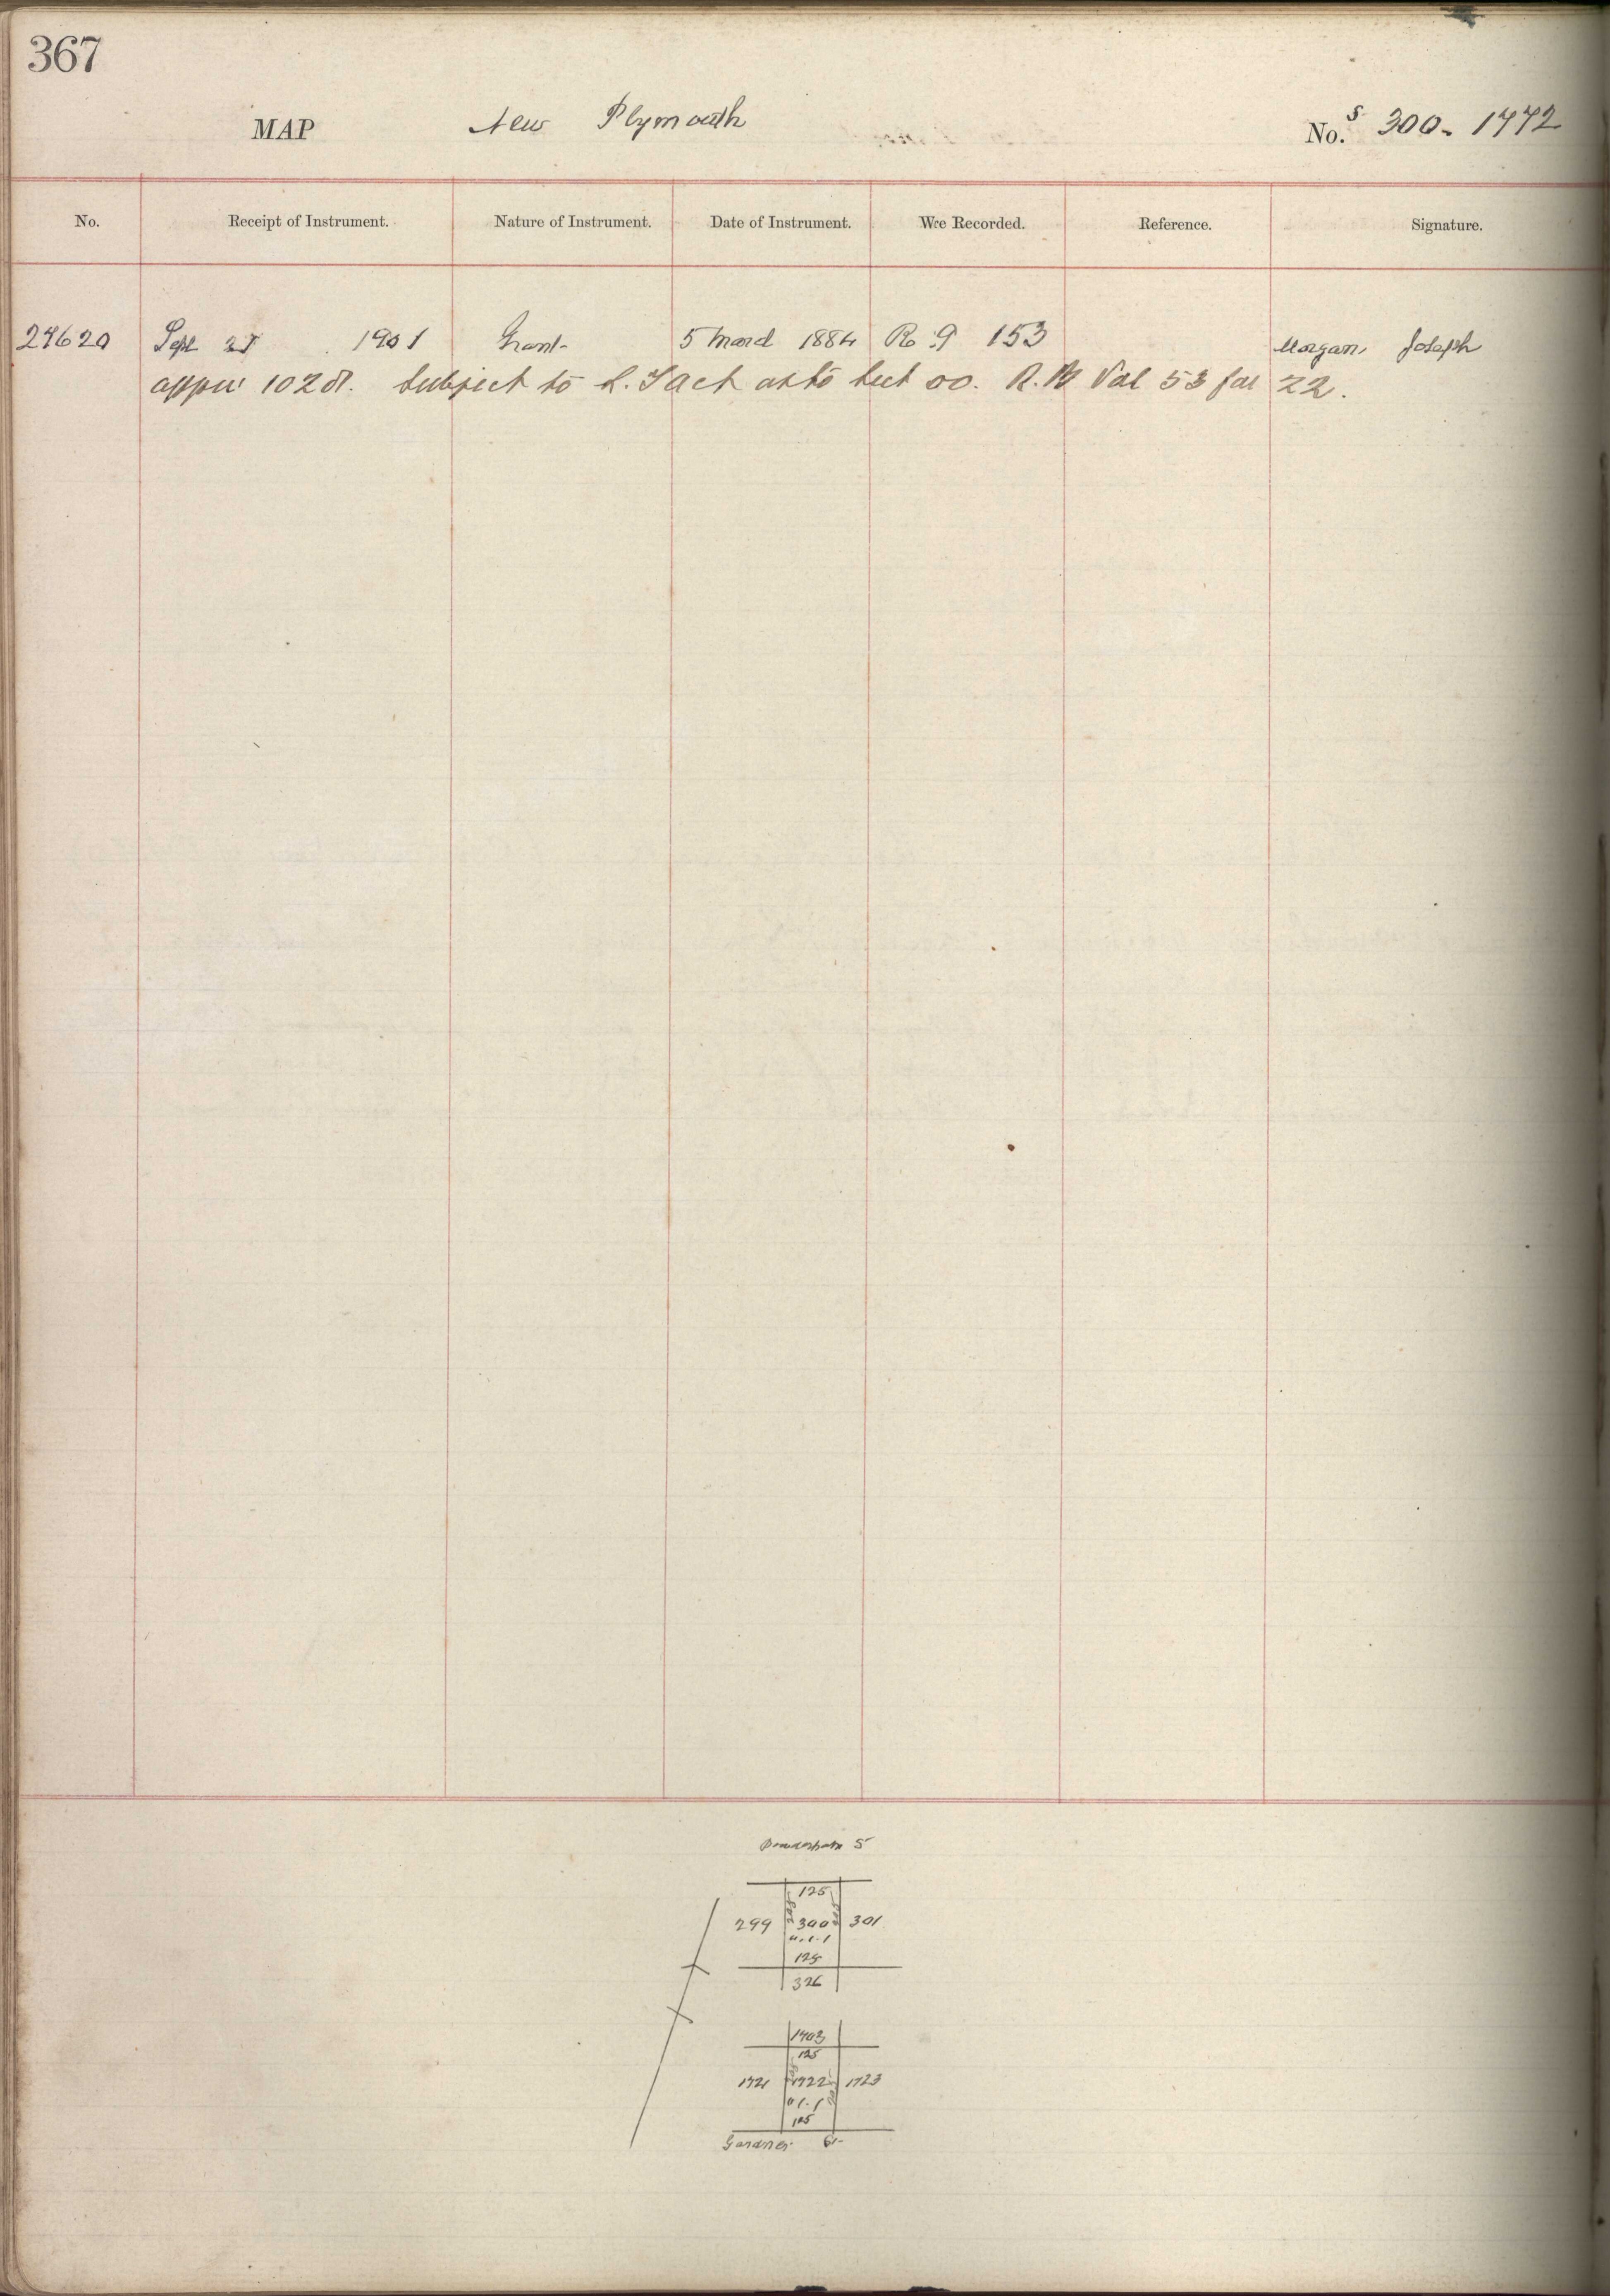 367
MAP New Plymouth No.s 300-1772
No. Receipt of Instrument. Nature of Instrument. Date of Instrument. Wre Recorded. Reference. Signature.
24620 Sept 1901 Grant 5 March 1884 R 9 153 Morgan, Joseph
1028. Subject to L. T act as to Sect 00. R. Vol 53 fol 22.
S
125
299 300 301
0.1.1
125
326
1703
125
1721 1722 1723
0.1.1
125
Gardner St